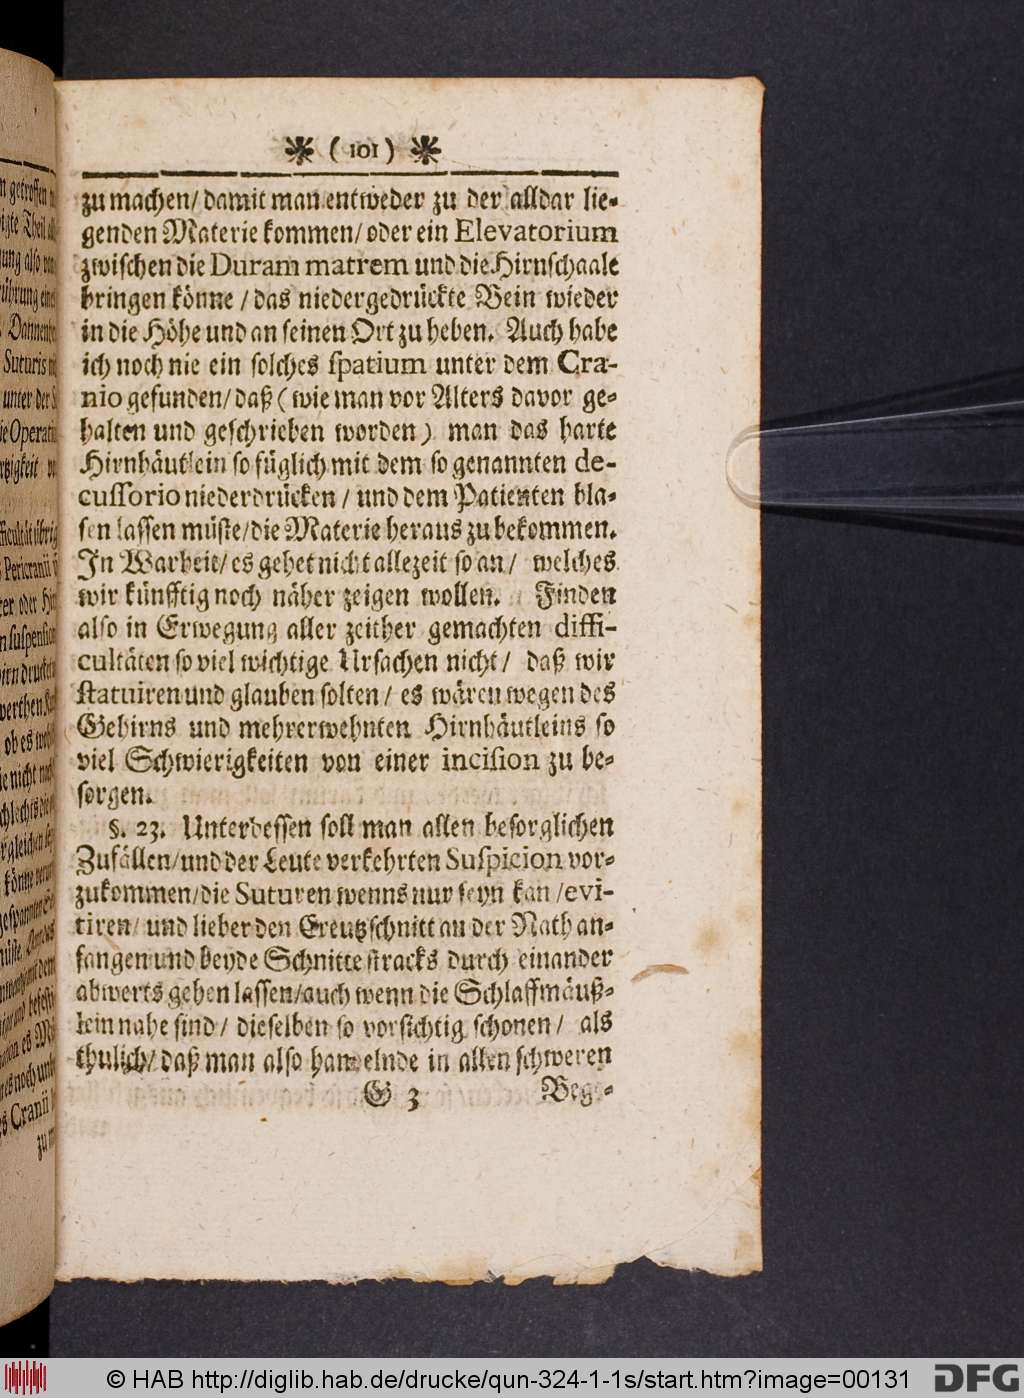 ❋ ( 101 ) ❋
zu machen/ damit man entweder zu der alldar lie-
genden Materie kommen/ oder ein Elevatorium
zwischen die Duram matrem und die Hirnschaale
bringen könne / das niedergedrückte Bein wieder
in die Höhe und an seinen Ort zu heben. Auch habe
ich noch nie ein solches spatium unter dem Cra-
nio gefunden/ daß ( wie man vor Alters davor ge-
halten und geschrieben worden ) man das harte
Hirnhäutlein so füglich mit dem so genannten de-
cussorio niederdrücken / und dem Patienten bla-
sen lassen müste/ die Materie heraus zu bekommen.
In Warheit/ es gehet nicht allezeit so an / welches
wir künfftig noch näher zeigen wollen. Finden
also in Erwegung aller zeither gemachten diffi-
cultäten so viel wichtige Ursachen nicht / daß wir
statuiren und glauben solten / es wären wegen des
Gehirns und mehrerwehnten Hirnhäutleins so
viel Schwierigkeiten von einer incision zu be-
sorgen.
§. 23. Unterdessen soll man allen besorglichen
Zufällen/ und der Leute verkehrten Suspicion vor-
zukommen/ die Suturen wenns nur seyn kan / evi-
tiren/ und lieber den Creutzschnitt an der Nath an-
fangen und beyde Schnitte stracks durch einander
abwerts gehen lassen/ auch wenn die Schlaffmäuß-
lein nahe sind / dieselben so vorsichtig schonen / als
thulich/ daß man also handelnde in allen schweren
G 3 Bege-
© HAB http://diglib.hab.de/drucke/qun-324-1-1s/start.htm?image=00131
DFG